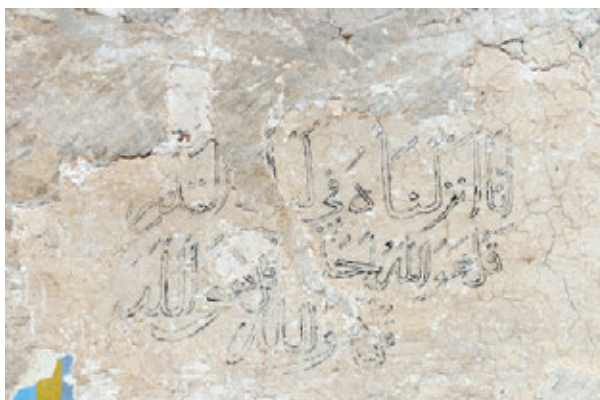 انا انزلناه في القدر
قل هو الله احد قل هو الله
قل هو الله